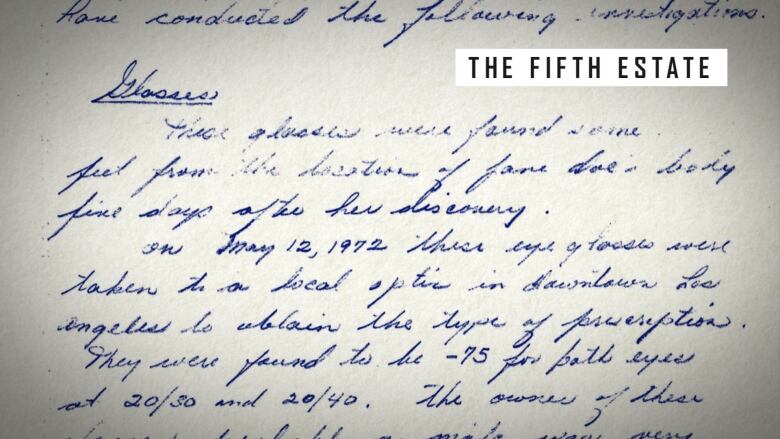 have conducted the following investigations.
THE FIFTH ESTATE
Glasses
These glasses were found some
feet from the location of Jane Doe's body
five days after her discovery.
on May 12, 1972 these eye glasses were
taken to a local optic in downtown Los
Angeles to obtain the type of prescription.
They were found to be -75 for both eyes
at 20/30 and 20/40. The owner of these
glasses probably a male was very